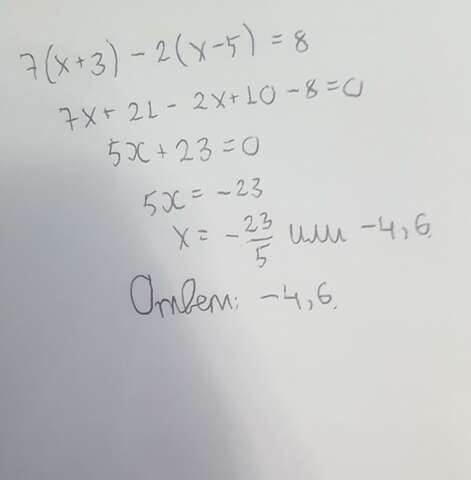 7(x+3) - 2(x-5) = 8
7x + 21 - 2x + 10 - 8 = 0
5x + 23 = 0
5x = -23
x = -23/5 или -4,6
Ответ: -4,6.